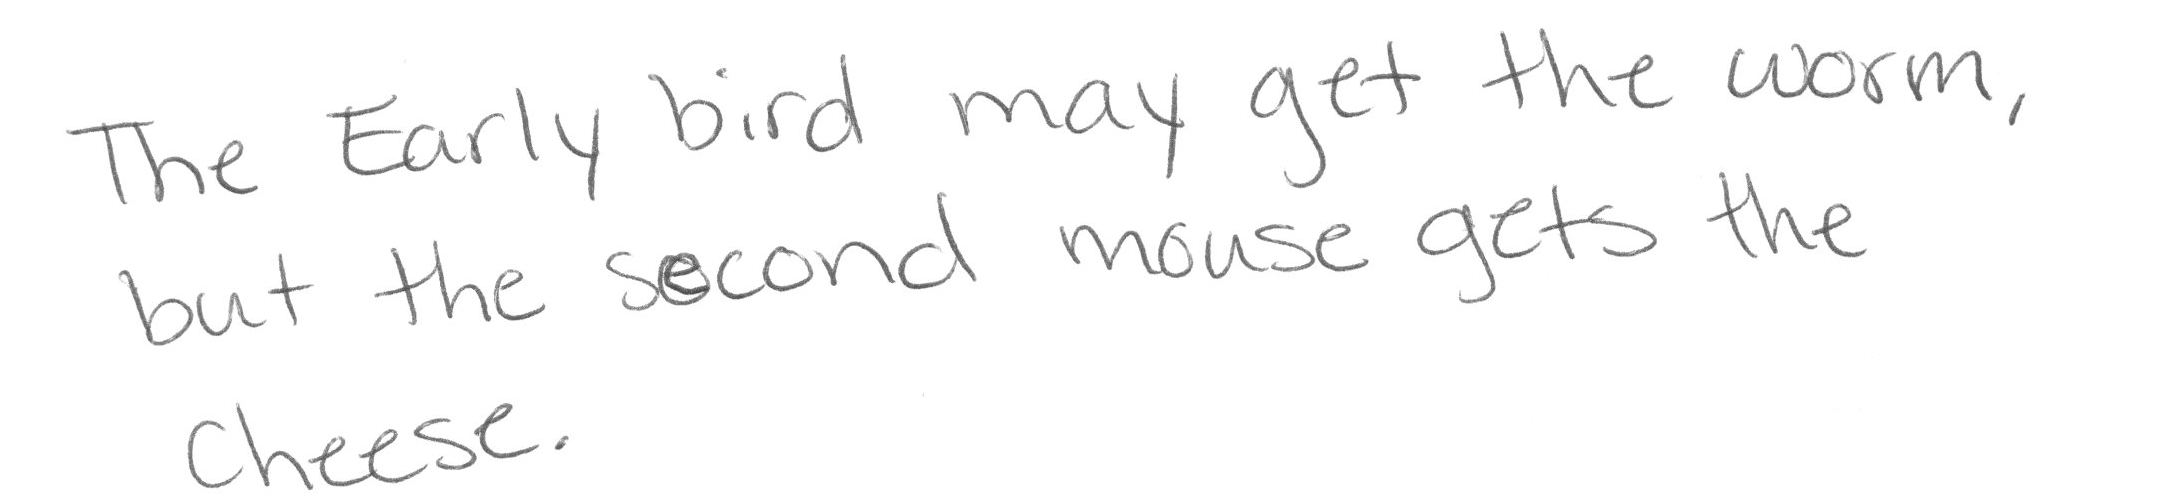 The Early bird may get the worm,
but the second mouse gets the
cheese.